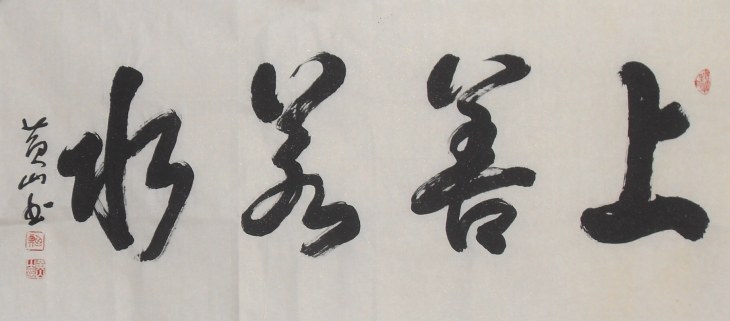 上善若水
黄山书